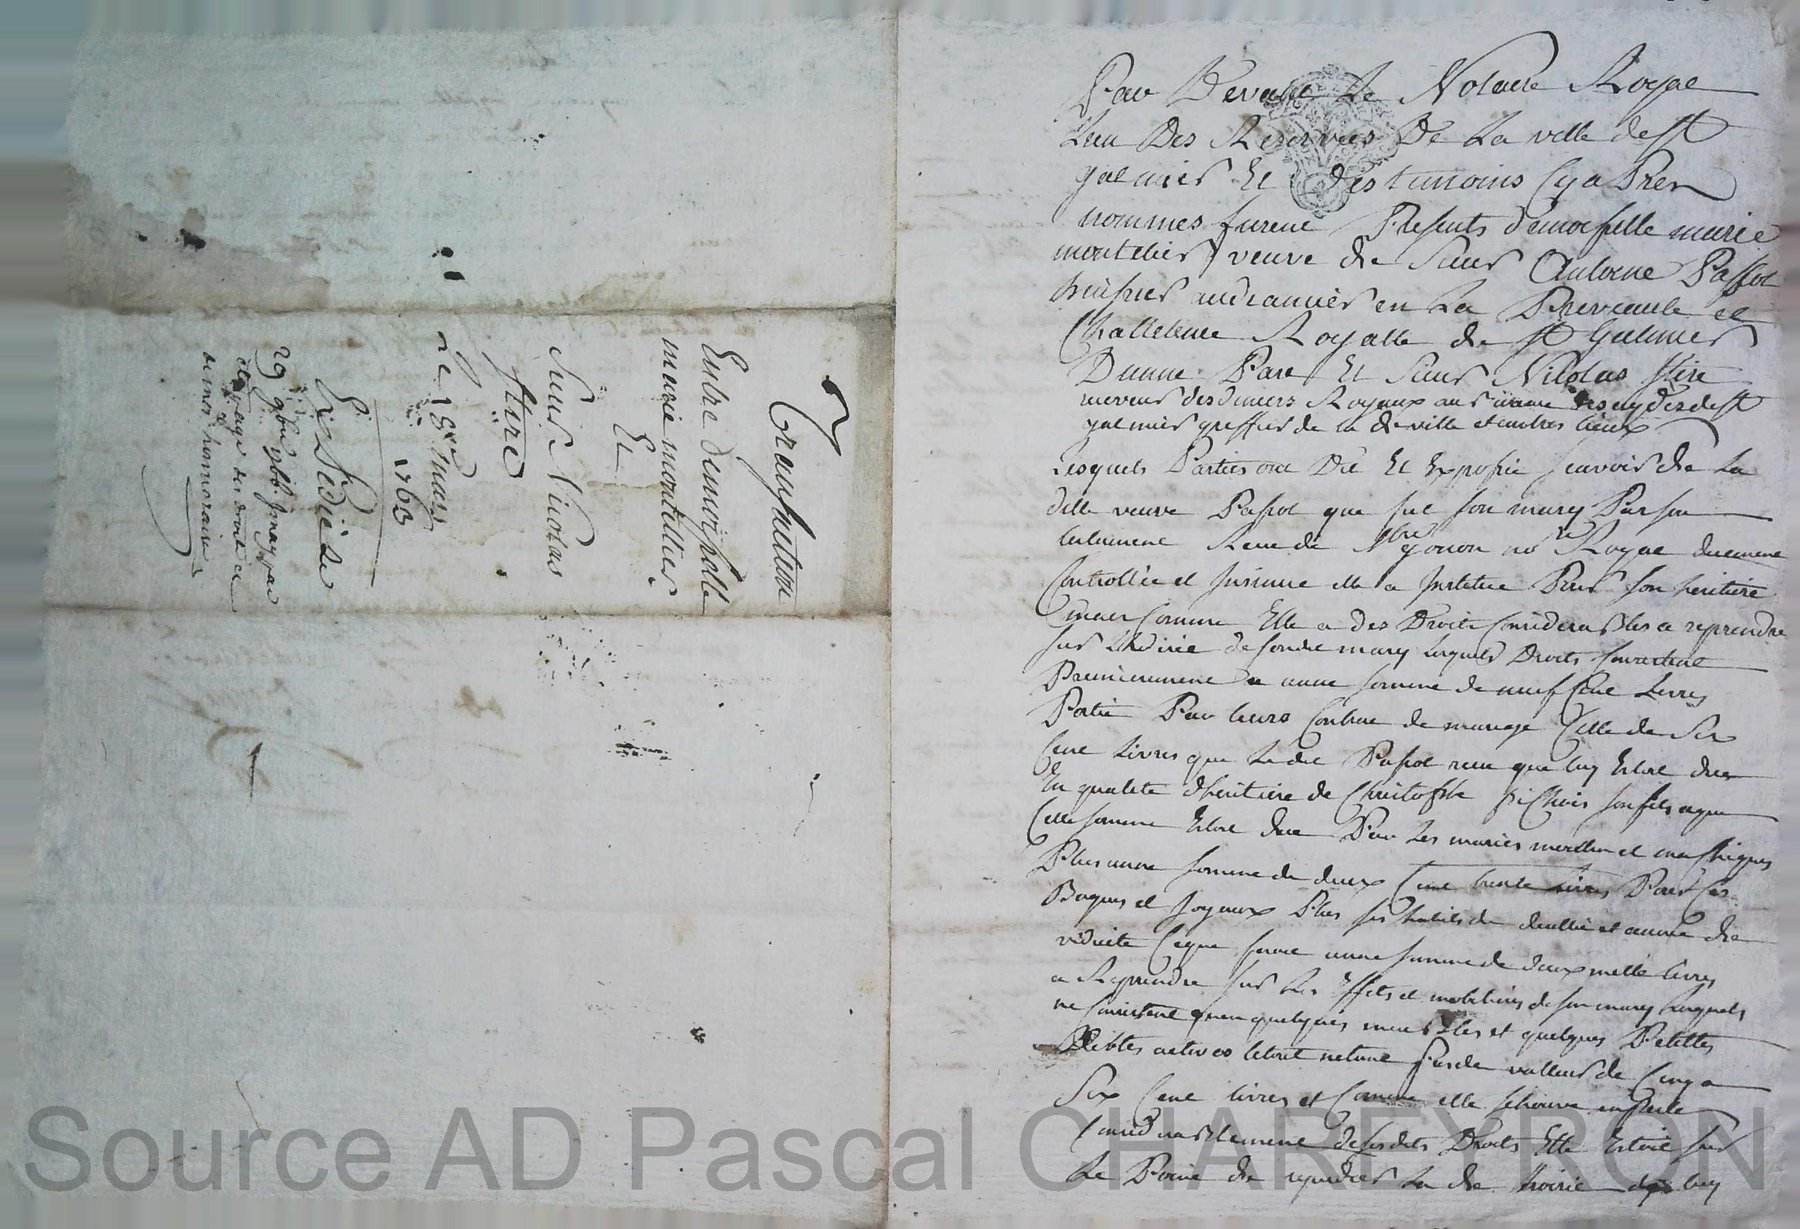 Transaction
Entre demoiselle
marie montellier
Et
Sieur Nicolas
Stire
Le 18e mars
1763
Expédiée
29
et des droits et
de mes honoraires
Par Devant Le Notaire Royal
des Reservés De La ville de St
galmier Et des temoins Cy a Pres
nommes furent Presents demoiselle marie
montelier veuve de Sieur Antoine Passot
huissier audiancier en La Prevauté et
Chattelenie Royalle de St Galmier
D'unne Part Et Sieur Nicolas Stire
receveur des deniers Royaux au de St
galmier greffier de la de ville et autres lieux
Lesquels Parties ont Dit Et Exposé scavoir de La
ditte veuve Passot que sut son mary Par son
testament Receu de Me gonon nore Royal duement
Controllée et Insinué elle a Institué Pour son heritiere
Comme Elle a des Droits Considerables a reprendre
sur L'hoirie de sondit mary lesquels Droits Consistent
Premierement a unne somme de neuf Cent Livres
Portée Par leurs Contrat de mariage Celle de Six
Cent Livres que Ledit Passot receu que luy Estoit due
En qualité d'heritiere de Christophle pichois son fils
Cette somme Estoit due Par Les mariés et
Plus unne somme de deux Cent trente Livres Pour ses
Bagues et Joyaux Plus ses habits de deullie et annee de
viduité Ce que forme unne somme de deux mille livres
a Reprendre sur Les Effets et mobiliers de son mary lesquels
ne Consistent quen quelques meubles et quelques Petittes
Debtes actives letout netant Pas de valleur de Cinq a
Six Cent livres et Comme elle se trouve en Perte
Considerablement de sesdits Droits Elle Estoit sur
Le Point de repudier La de hoirie